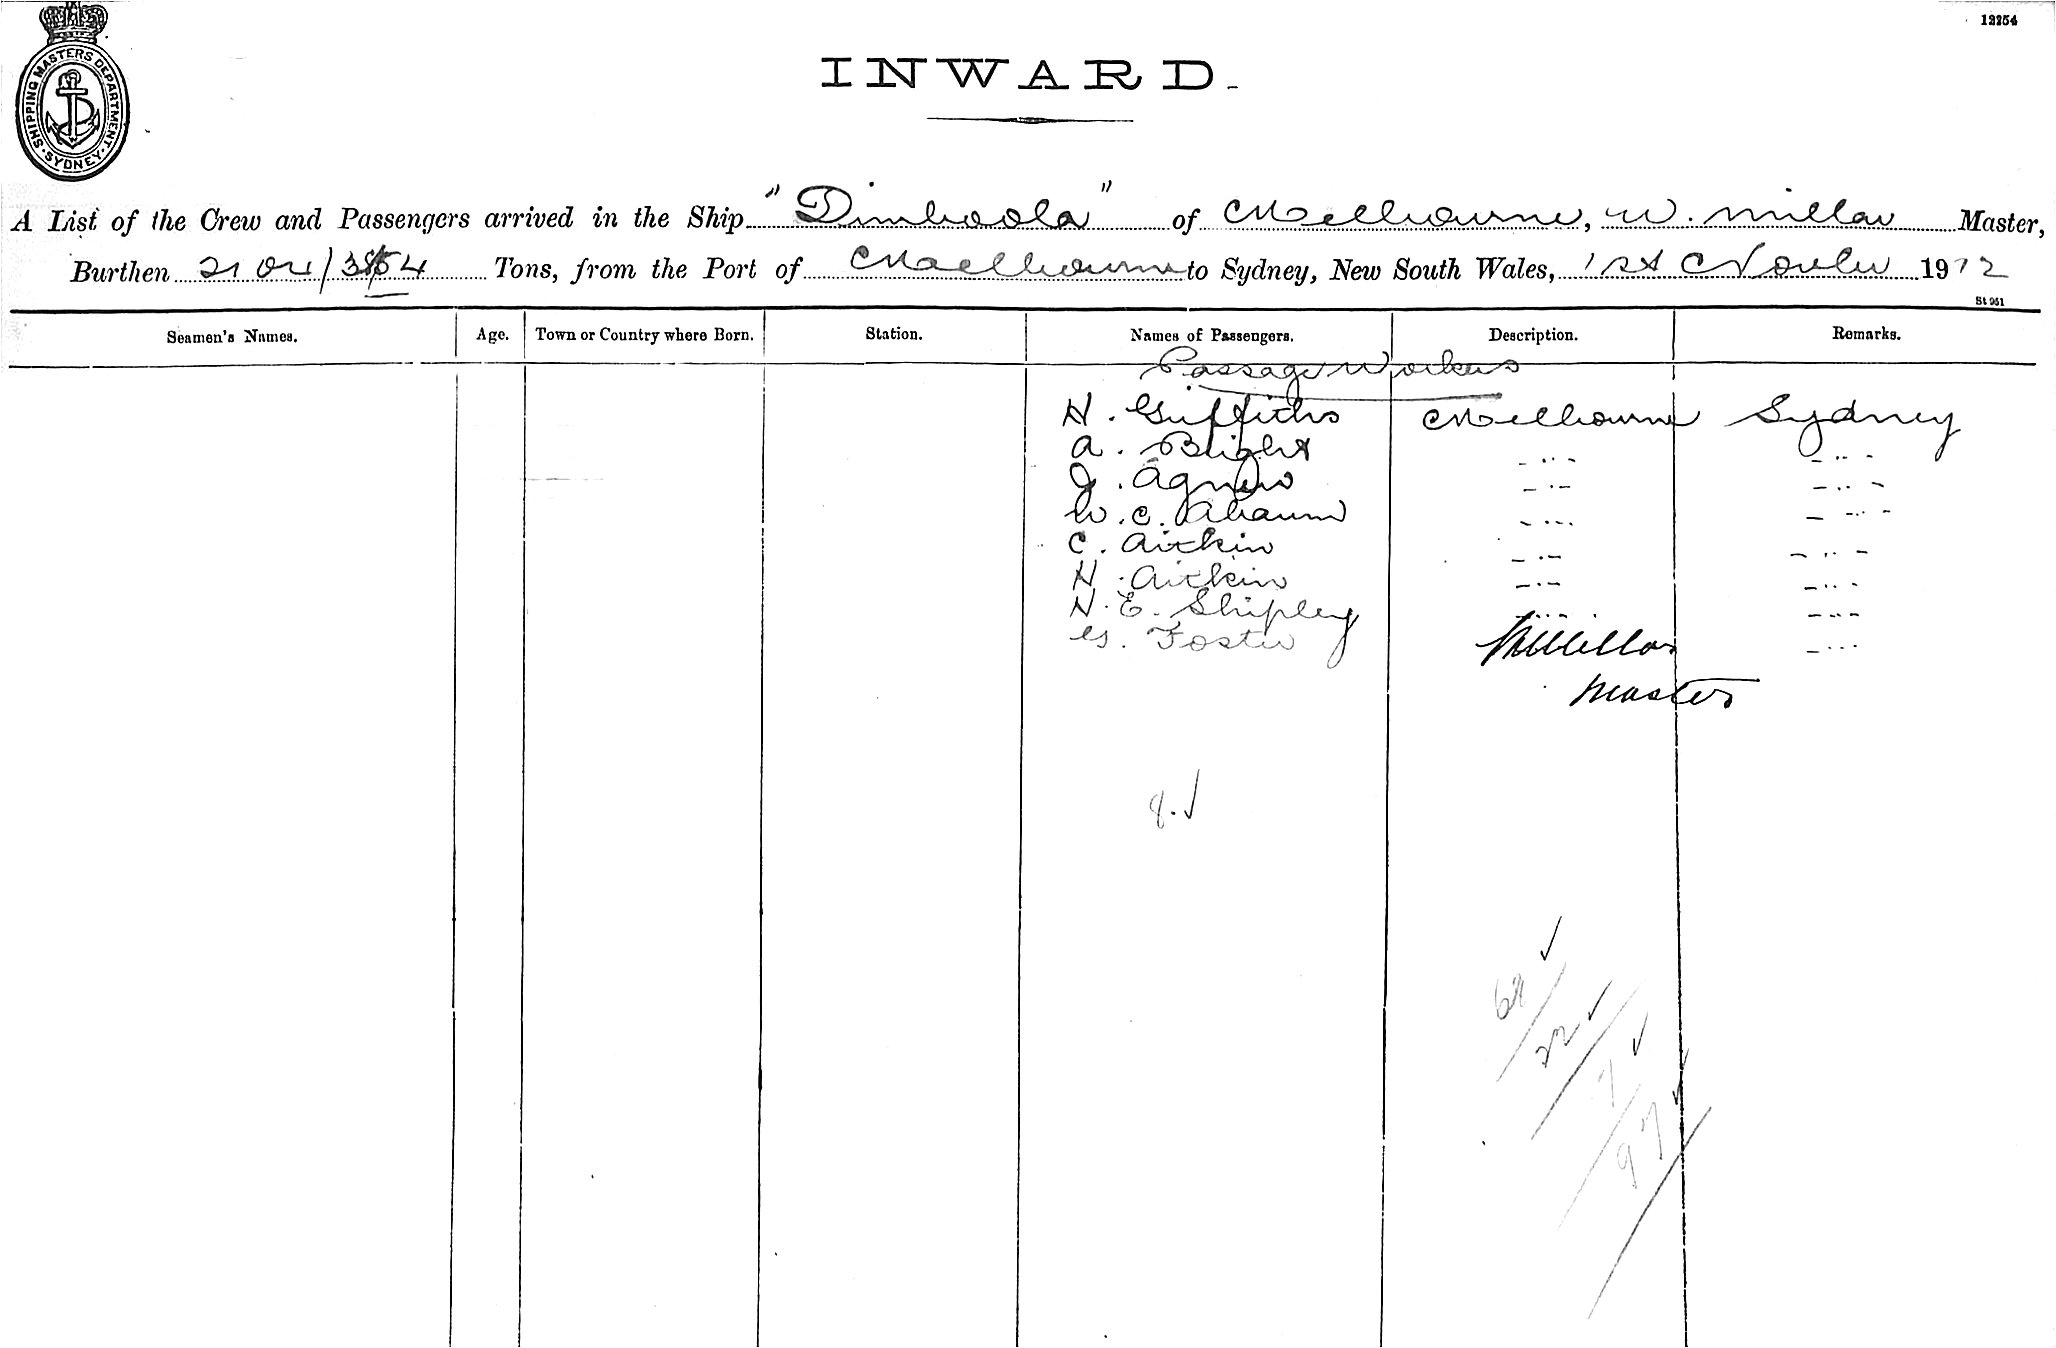 12254
SHIPPING MASTERS DEPARTMENT · SYDNEY ·
INWARD.
A List of the Crew and Passengers arrived in the Ship "Dimboola" of Melbourne, W. Millar Master,
Burthen Tons, from the Port of Melbourne to Sydney, New South Wales, 1st 1912
St 951
Seamen's Names. Age. Town or Country where Born. Station. Names of Passengers. Description. Remarks.
Passage Workers
H. Griffiths Melbourne Sydney
A. Blight -··- -··-
J. Agnew -·- -··-
W. C. -··- -··-
C. Aitkin -·- -··-
H. Aitkin -·- -··-
H. E. Shipley ---- ---
G. Foster WMillar -···
Master
8. ✓
22 ✓
7 ✓
97 ✓